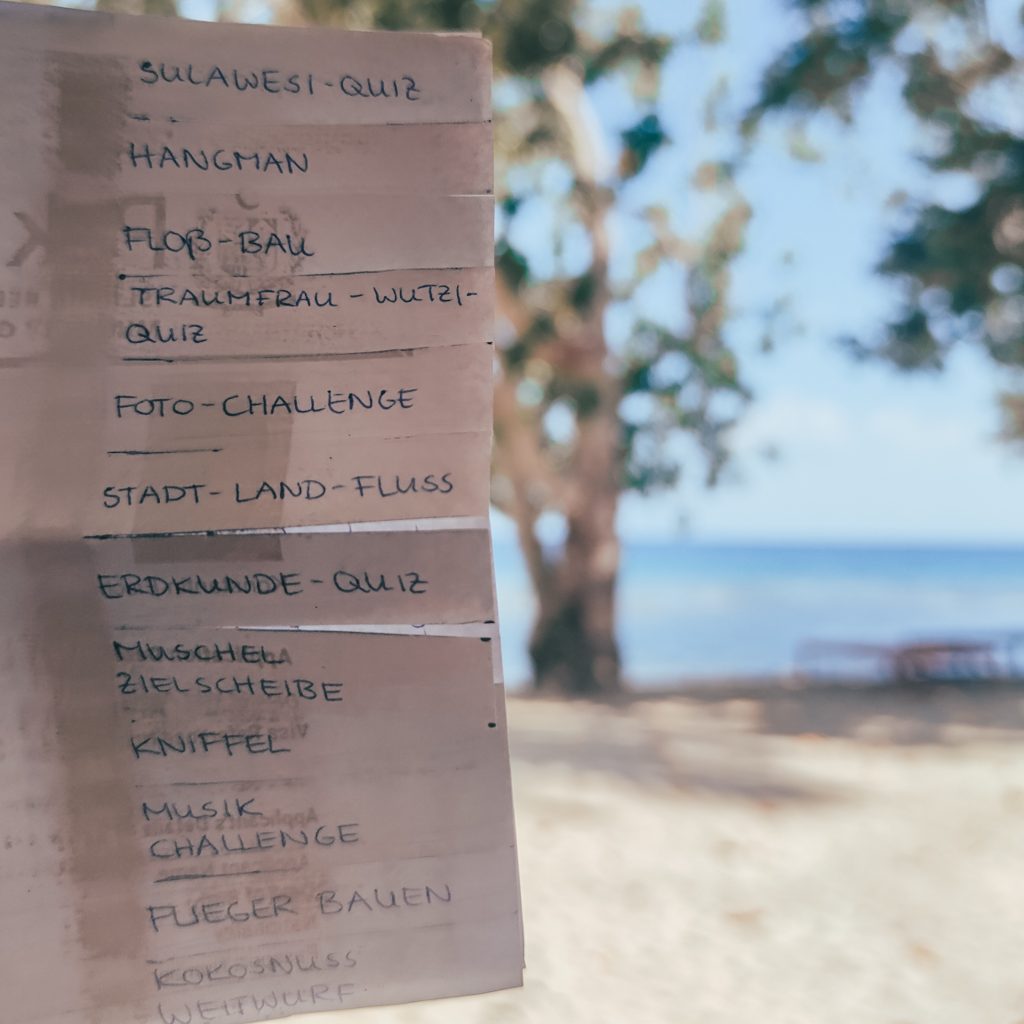 SULAWESI-QUIZ
HANGMAN
FLOß-BAU
TRAUMFRAU-WUTZI-
QUIZ
FOTO-CHALLENGE
STADT-LAND-FLUSS
ERDKUNDE-QUIZ
MUSCHEL
ZIELSCHEIBE
KNIFFEL
MUSIK
CHALLENGE
FLIEGER BAUEN
KOKOSNUSS
WEITWURF